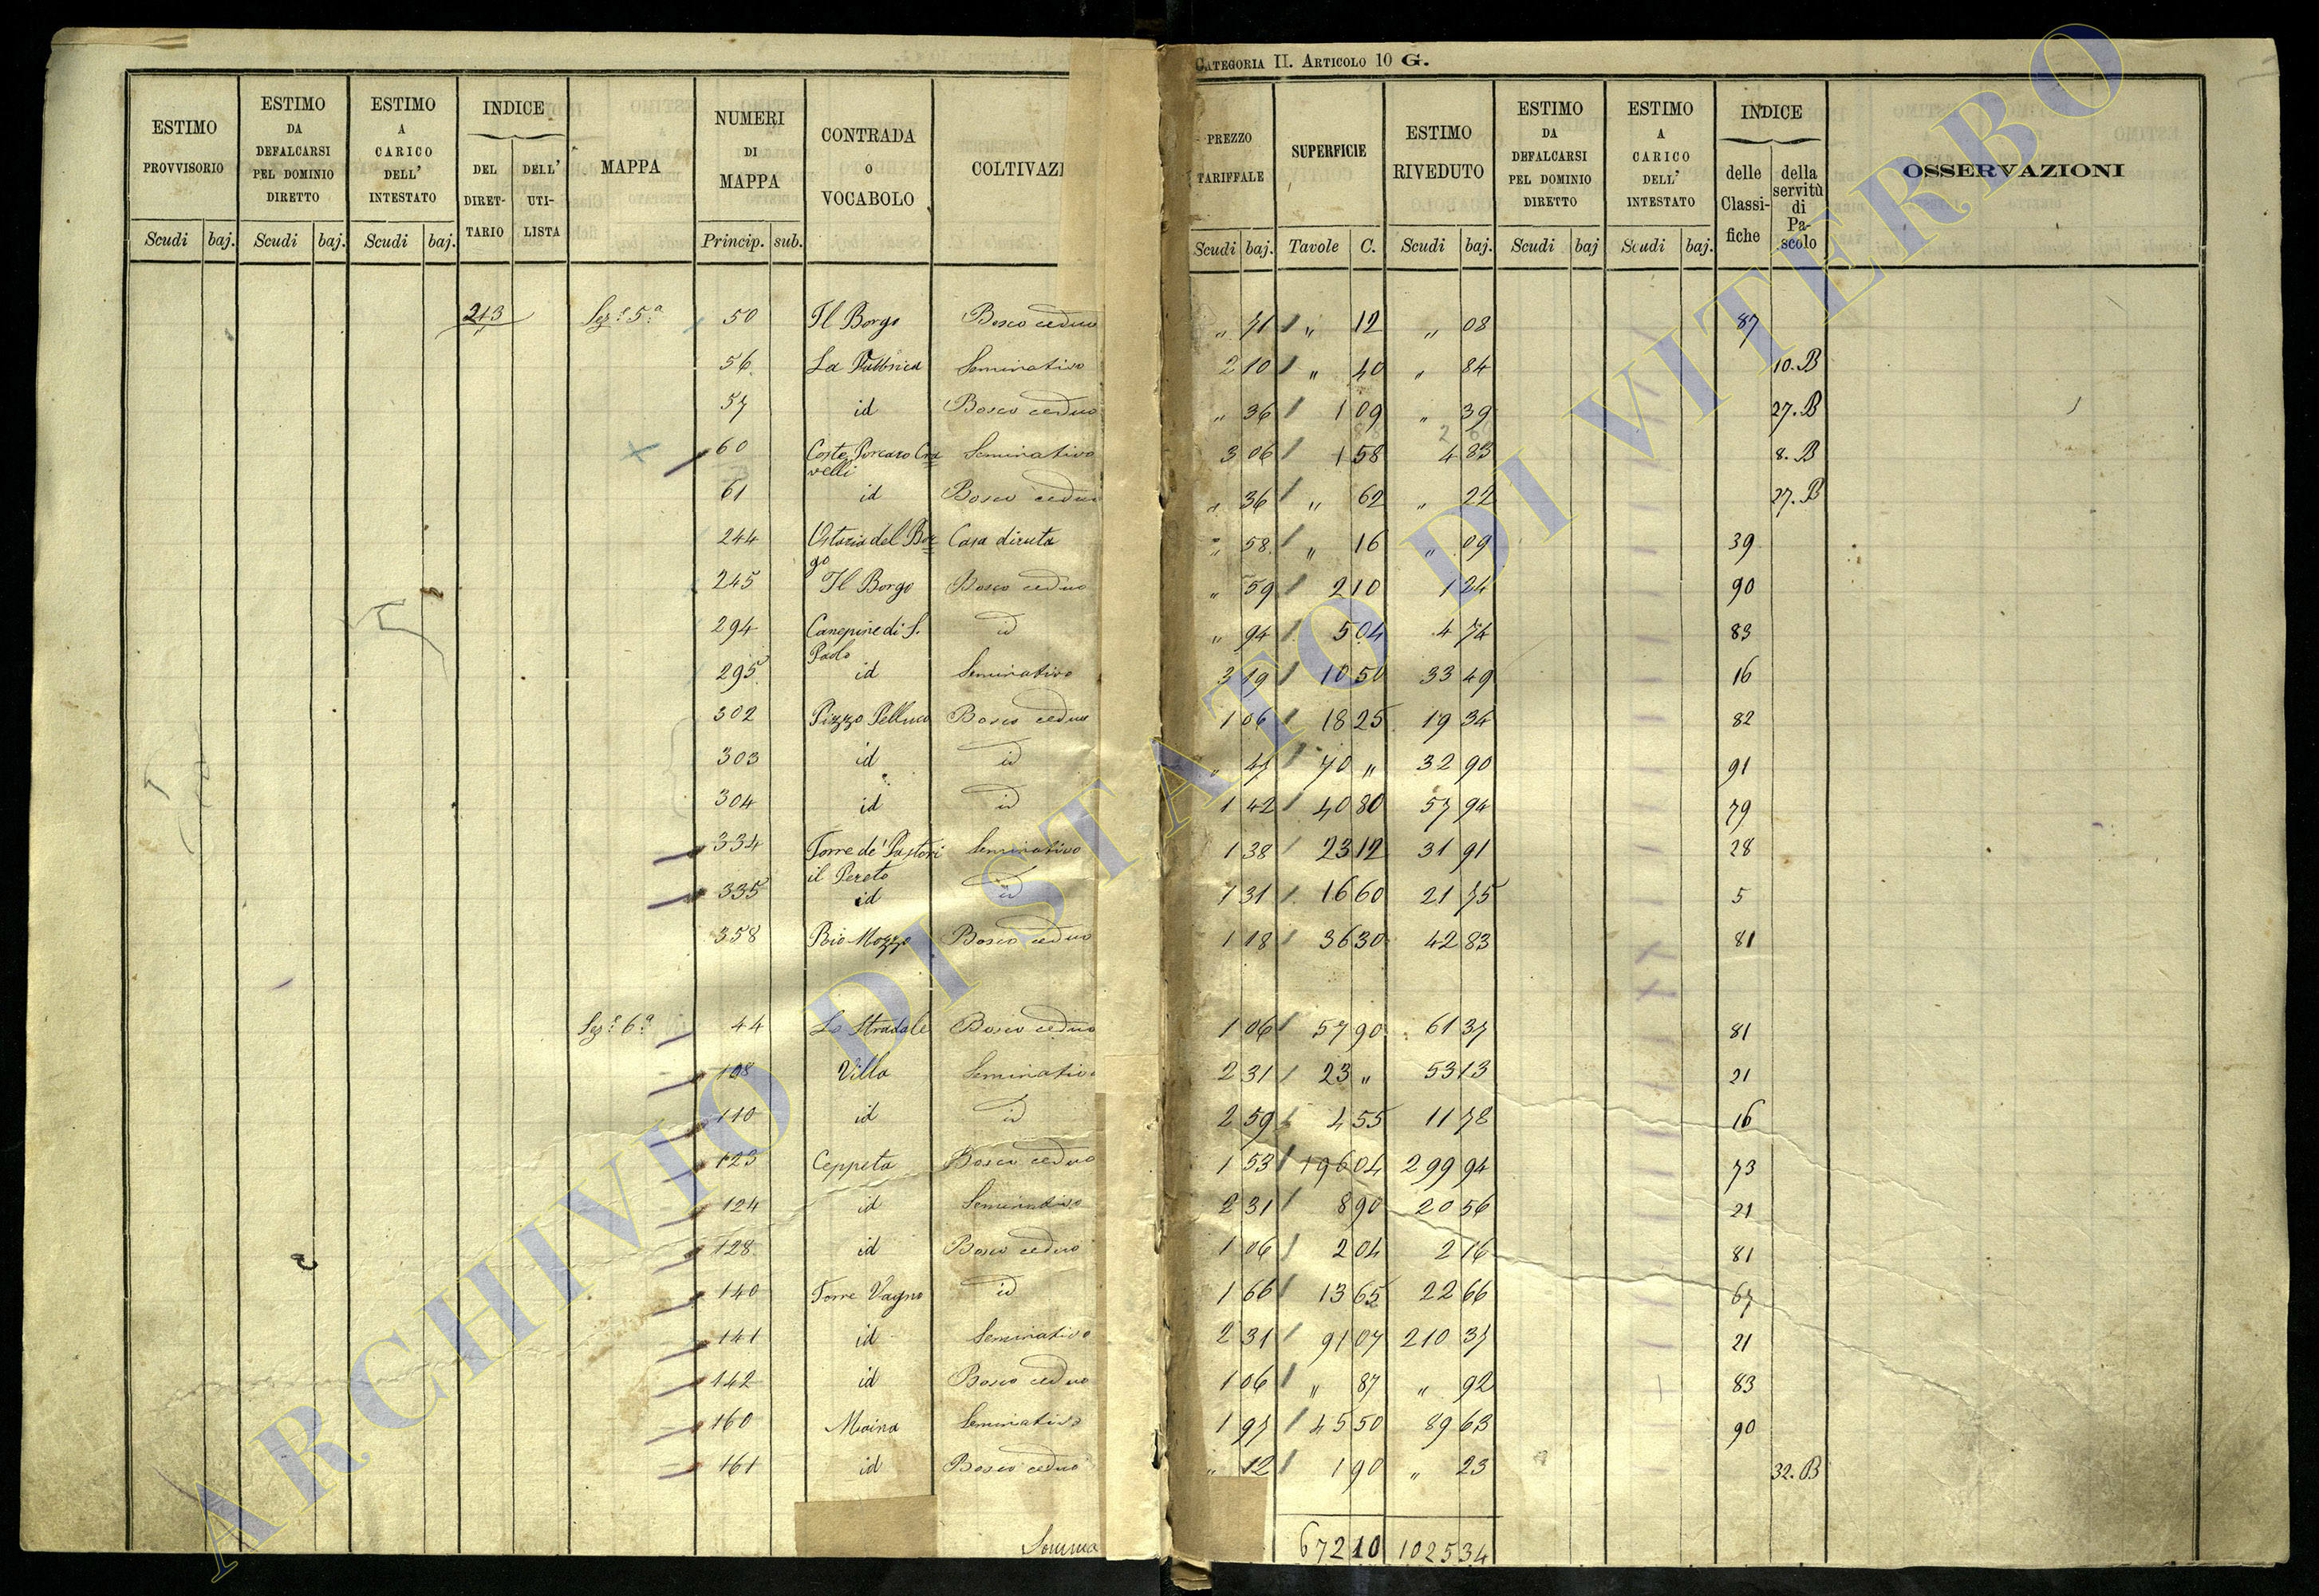 CATEGORIA II. ARTICOLO 10 G.
ESTIMO PROVVISORIO
ESTIMO DA DEFALCARSI PEL DOMINIO DIRETTO
ESTIMO A CARICO DELL' INTESTATO
INDICE
DEL DIRET-TARIO
DELL' UTI-LISTA
MAPPA
NUMERI DI MAPPA
CONTRADA O VOCABOLO
COLTIVAZI
PREZZO TARIFFALE
SUPERFICIE
ESTIMO RIVEDUTO
ESTIMO DA DEFALCARSI PEL DOMINIO DIRETTO
ESTIMO A CARICO DELL' INTESTATO
INDICE
delle Classi-fiche
della servitù di Pa-scolo
OSSERVAZIONI
Scudi baj. Scudi baj. Scudi baj. Princip. sub. Scudi baj. Tavole C. Scudi baj. Scudi baj Scudi baj.
213 Sez.e 5.a 50 Il Borgo Bosco ceduo " 71 " 12 " 08 87
56 La Fabbrica Seminativo 2 10 " 40 " 84 10. B
57 id Bosco ceduo " 36 1 09 " 39 27. B
60 Coste Porcaro Cra= Seminativo 3 06 1 58 4 83 8. B
velli
61 id Bosco ceduo " 36 " 62 " 22 27. B
244 Ostaria del Bor= Casa diruta " 58 " 16 " 09 39
go
245 Il Borgo Bosco ceduo " 59 2 10 1 24 90
294 Canepine di S. id " 94 5 04 4 74 83
Paolo
295 id Seminativo 3 19 10 50 33 49 16
302 Pizzo Pelluco Bosco ceduo 1 06 18 25 19 34 82
303 id id " 47 70 " 32 90 91
304 id id 1 42 40 80 57 94 79
334 Torre de' Pastori Seminativo 1 38 23 12 31 91 28
il Pereto
335 id id 1 31 16 60 21 75 5
358 Rio Mozzo Bosco ceduo 1 18 36 30 42 83 81
Sez.e 6.a 44 Lo Stradale Bosco ceduo 1 06 57 90 61 37 81
108 Villa Seminativo 2 31 23 " 53 13 21
110 id id 2 59 4 55 11 78 16
123 Ceppeta Bosco ceduo 1 53 196 04 299 94 73
124 id Seminativo 2 31 8 90 20 56 21
128 id Bosco ceduo 1 06 2 04 2 16 81
140 Torre Vagno id 1 66 13 65 22 66 67
141 id Seminativo 2 31 91 07 210 37 21
142 id Bosco ceduo 1 06 " 87 " 92 83
160 Maina Seminativo 1 97 45 50 89 63 90
161 id Bosco ceduo " 12 1 90 " 23 32. B
Somma 672 10 1025 34
ARCHIVIO DI STATO DI VITERBO